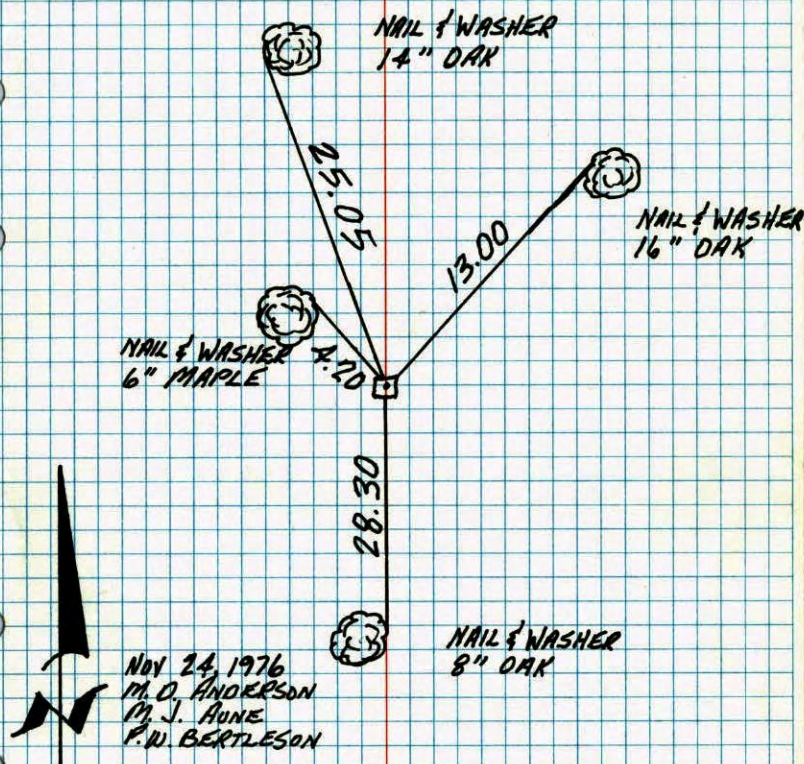 NAIL & WASHER
14" OAK
25.05
13.00
NAIL & WASHER
16" OAK
NAIL & WASHER
6" MAPLE
28.30
NAIL & WASHER
8" OAK
N
NOV 24, 1976
M.D. ANDERSON
M.J. AUNE
P.W. BERTLESON